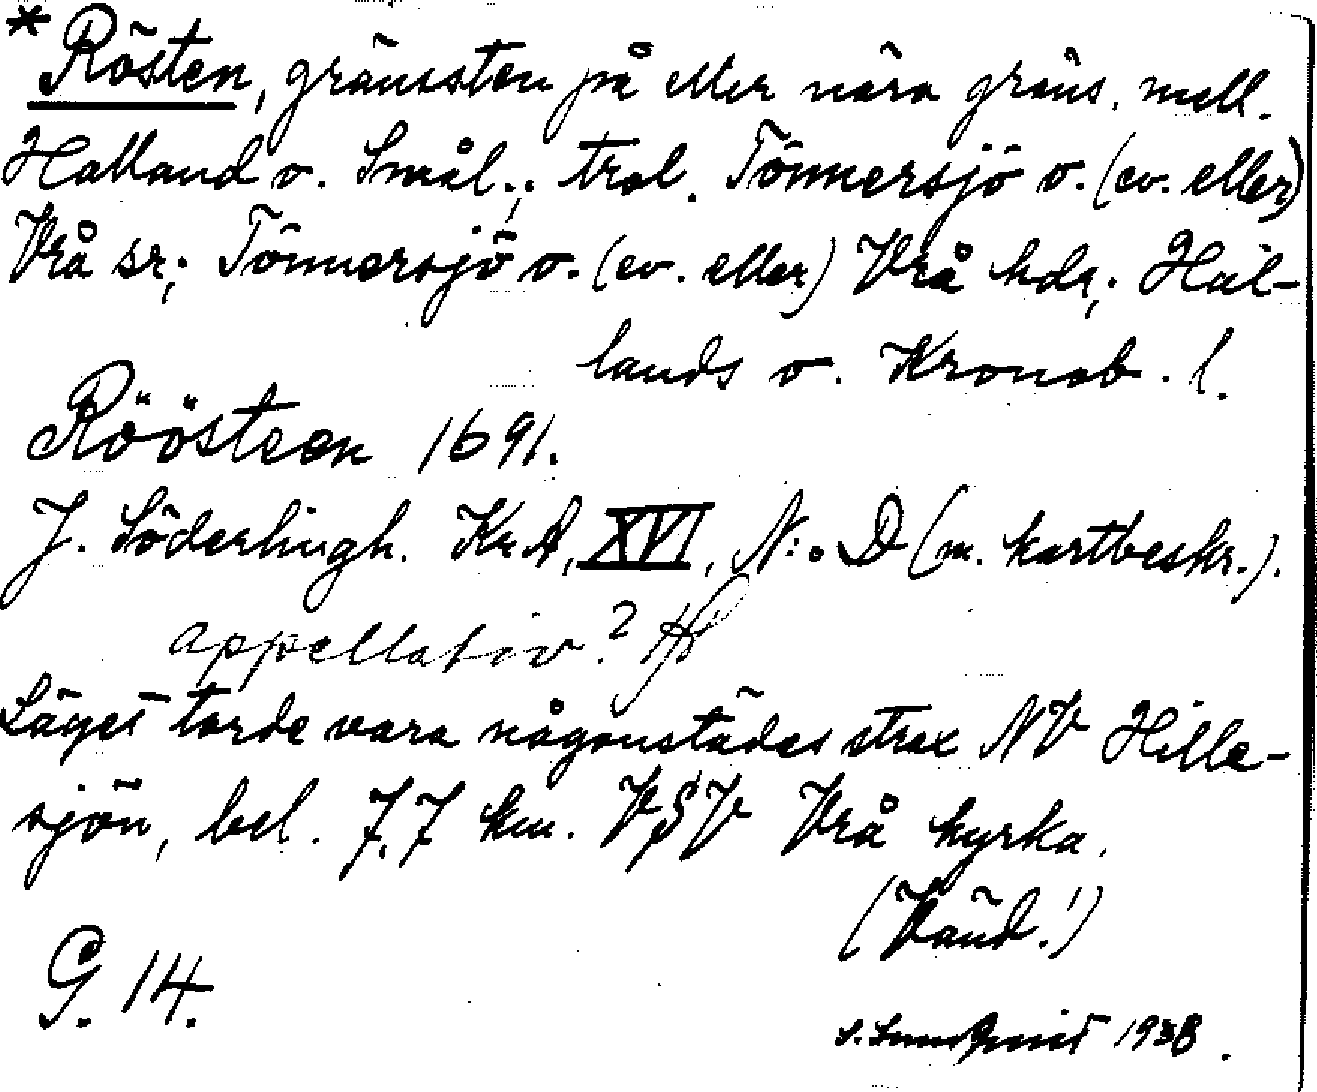 * Rösten, gränssten på eller nära gräns. mell.
Halland o. Smål.; trol. Tönnersjö o. (ev. eller)
Vrå sr; Tönnersjö o. (ev. eller) Vrå hdr; Hal-
lands o. Kronob. l.
Röösteen 1691.
J. Söderlingh. KrA, XVI, N:o D (m. kartbeskr.).
appellativ?
Läget torde vara någonstädes strax NV Hille-
sjön, bel. 7,7 km. VSV Vrå kyrka.
(Vänd!)
G. 14.
1938.